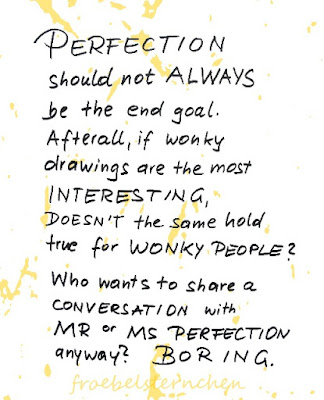 PERFECTION
should not ALWAYS
be the end goal.
Afterall, if wonky
drawings are the most
INTERESTING,
DOESN'T the same hold
true for WONKY PEOPLE?
Who wants to share a
CONVERSATION with
MR or MS PERFECTION
anyway? BORING.
froebelsternchen